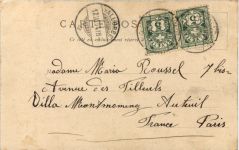 CARTE POSTALE
Madame Maria Roussel 7 bis
Avenue des Tilleuls
Villa Montmorency Auteuil
France Paris